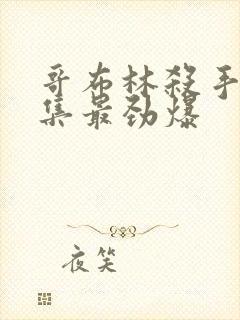 哥布林殺手
集最劲爆
夜笑